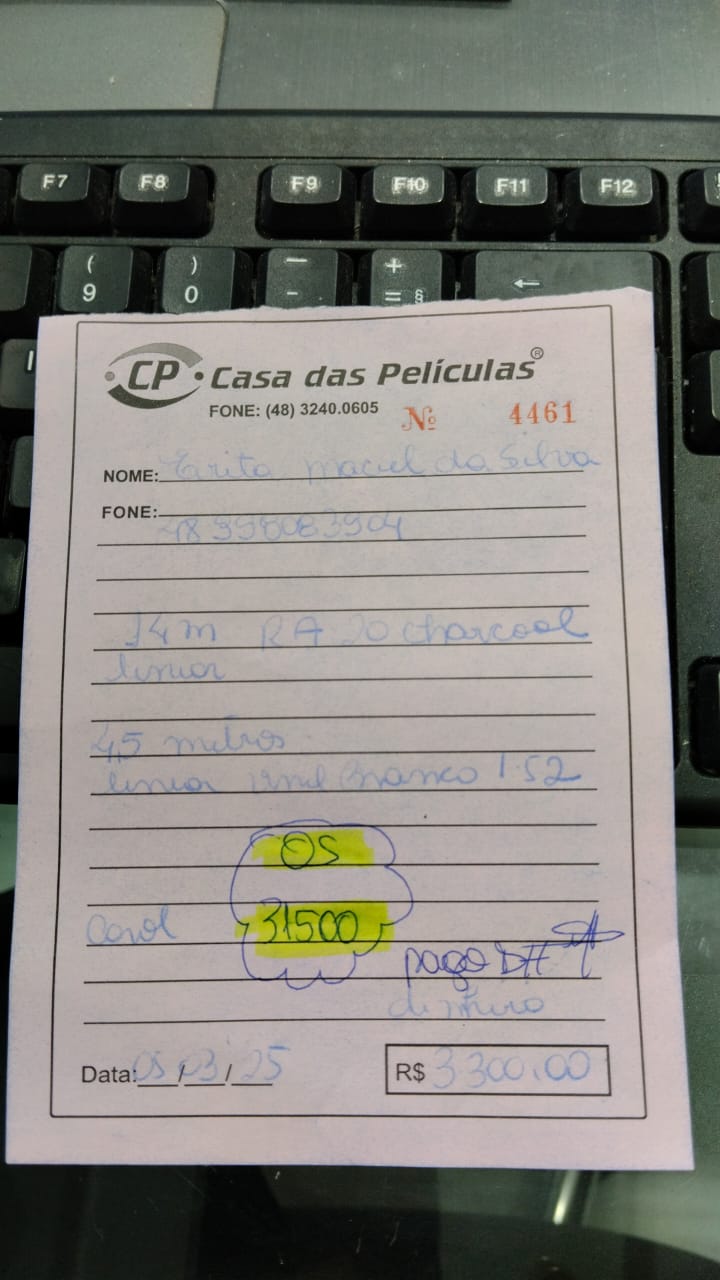 F7 F8 F9 F10 F11 F12
( ) — +
9 0 - = § ←
CP Casa das Películas®
FONE: (48) 3240.0605 Nº 4461
NOME: Maciel da Silva
FONE:
14m RA 20 charcoal
linear
4,5 metros
linear vinil Branco 1.52
OS
Carol 31500
pago DH
dinheiro
Data: 05/03/25 R$ 3300.00